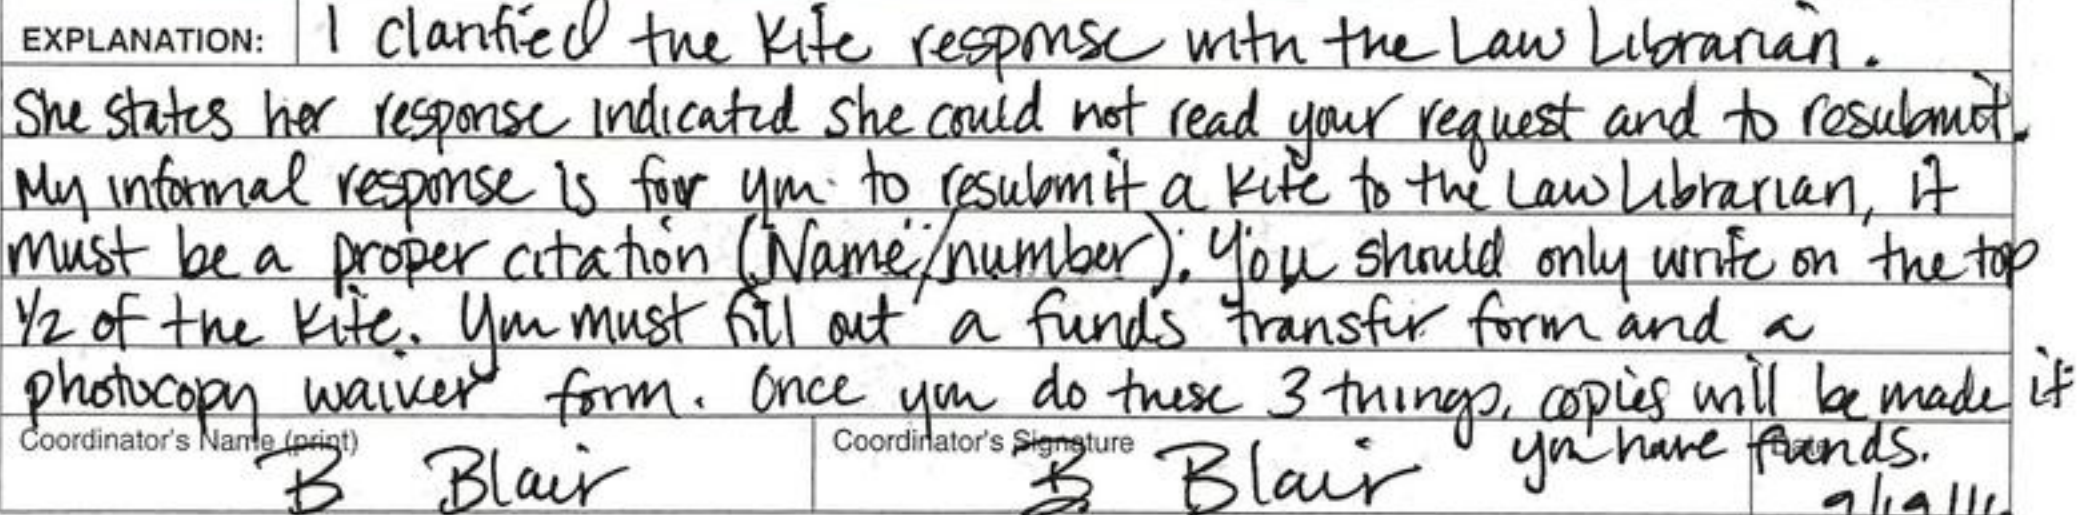 EXPLANATION: I clarified the Kite response with the Law Librarian.
She states her response indicated she could not read your request and to resubmit.
My informal response is for you to resubmit a Kite to the Law Librarian, it
must be a proper citation (Name/number). You should only write on the top
1/2 of the Kite. You must fill out a funds transfer form and a
photocopy waiver form. Once you do these 3 things, copies will be made if
you have funds.
Coordinator's Name (print) Coordinator's Signature
B Blair B Blair